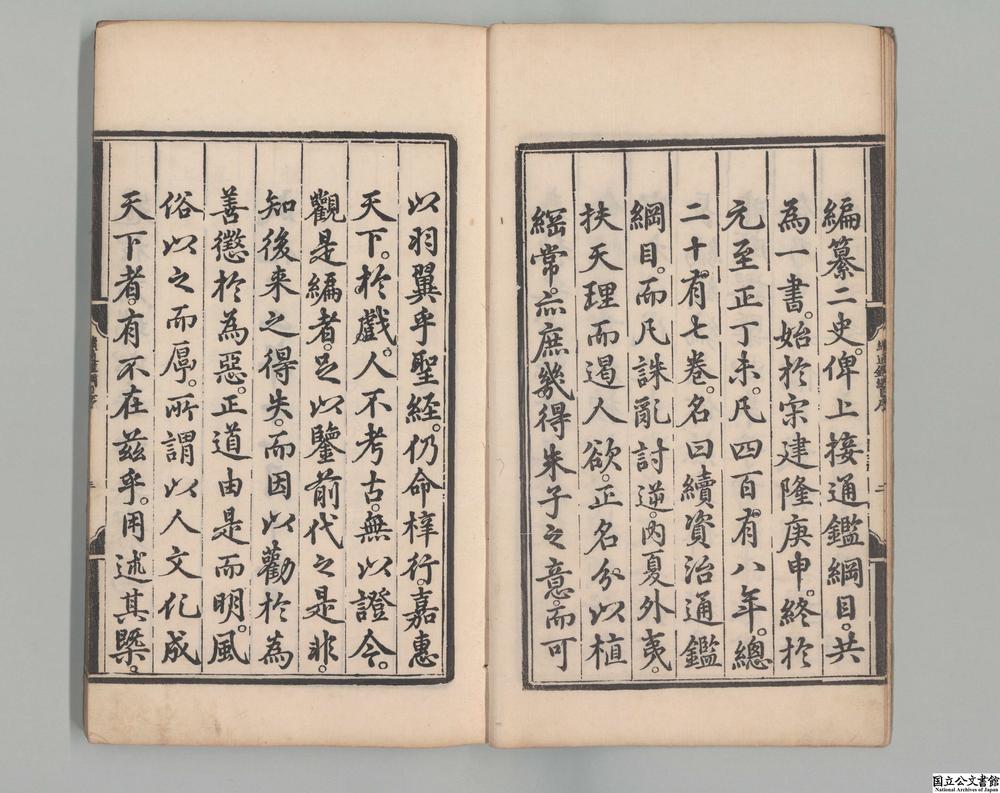 編纂二史。俾上接通鑑綱目。共
為一書。始於宋建隆庚申。終於
元至正丁未。凡四百有八年。總
二十有七卷。名曰續資治通鑑
綱目。而凡誅亂討逆。內夏外夷。
扶天理而遏人欲。正名分以植
綱常。亦庶幾得朱子之意。而可
以羽翼乎聖經。仍命梓行。嘉惠
天下。於戲。人不考古。無以證今。
觀是編者。足以鑒前代之是非。
知後来之得失。而因以勸於為
善懲於為惡。正道由是而明。風
俗以之而厚。所謂以人文化成
天下者。有不在茲乎。用述其槩。
国立公文書館
National Archives of Japan